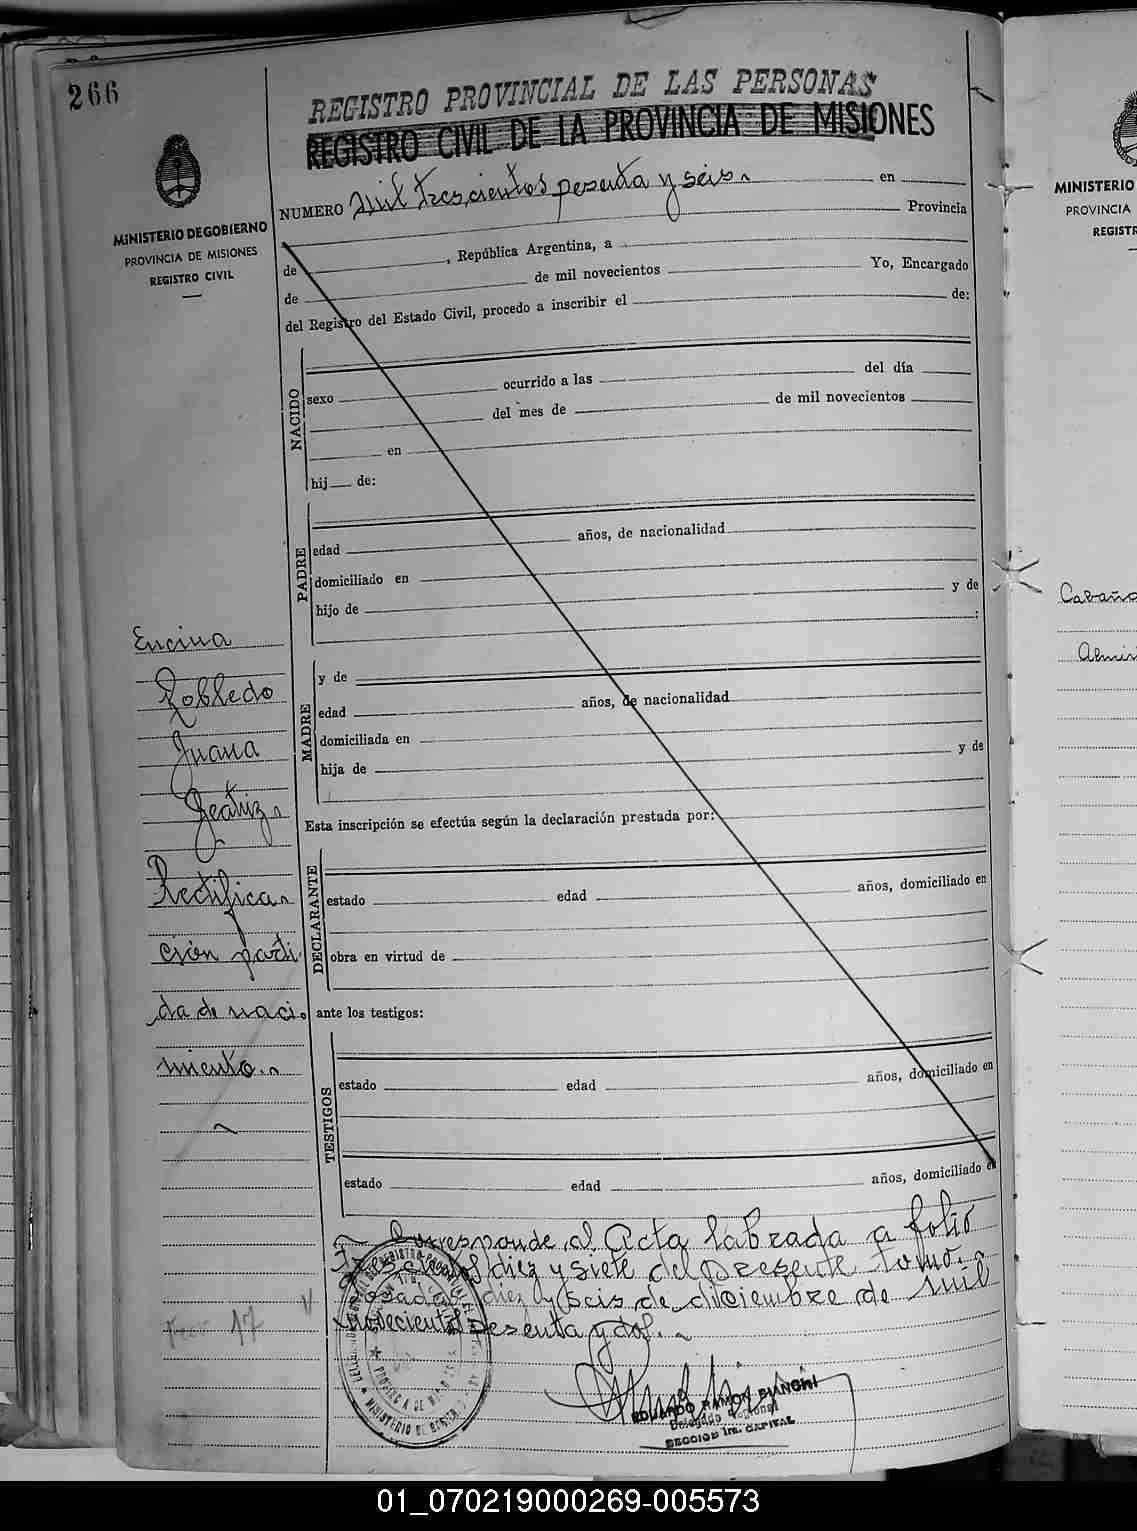 266
REGISTRO PROVINCIAL DE LAS PERSONAS
REGISTRO CIVIL DE LA PROVINCIA DE MISIONES
MINISTERIO DE GOBIERNO
PROVINCIA DE MISIONES
REGISTRO CIVIL
NUMERO Mil trescientos sesenta y seis en
Provincia
de , República Argentina, a
de de mil novecientos Yo, Encargado
del Registro del Estado Civil, procedo a inscribir el de:
NACIDO
sexo ocurrido a las del día
del mes de de mil novecientos
en
hij de:
PADRE
edad años, de nacionalidad
domiciliado en
hijo de y de
:
MADRE
y de
edad años, de nacionalidad
domiciliada en
hija de y de
Esta inscripción se efectúa según la declaración prestada por:
DECLARANTE
estado edad años, domiciliado en
obra en virtud de
ante los testigos:
TESTIGOS
estado edad años, domiciliado en
estado edad años, domiciliado en
Encina
Robledo
Juana
Beatriz
Rectifica
ción parti
da de naci
miento.
Corresponde al Acta labrada a folio
trescientos diez y siete del presente tomo.
Posadas, diez y seis de diciembre de mil
novecientos sesenta y dos.
17
EDUARDO RAMON BIANCHI
Delegado Regional
SECCION 1ra. CAPITAL
MINISTERIO
PROVINCIA
REGISTR
01_070219000269-005573